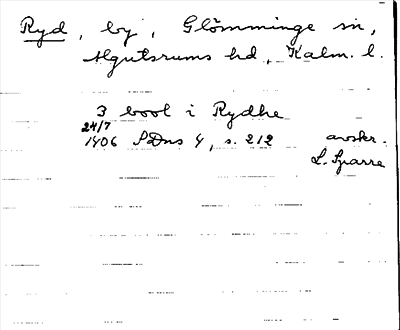 Ryd, by, Glömminge sn,
Algutsrums hd, Kalm. l.
3 bool i Rydhe
24/7
1406 SDns 4, s. 212 avskr.
L. Sparre